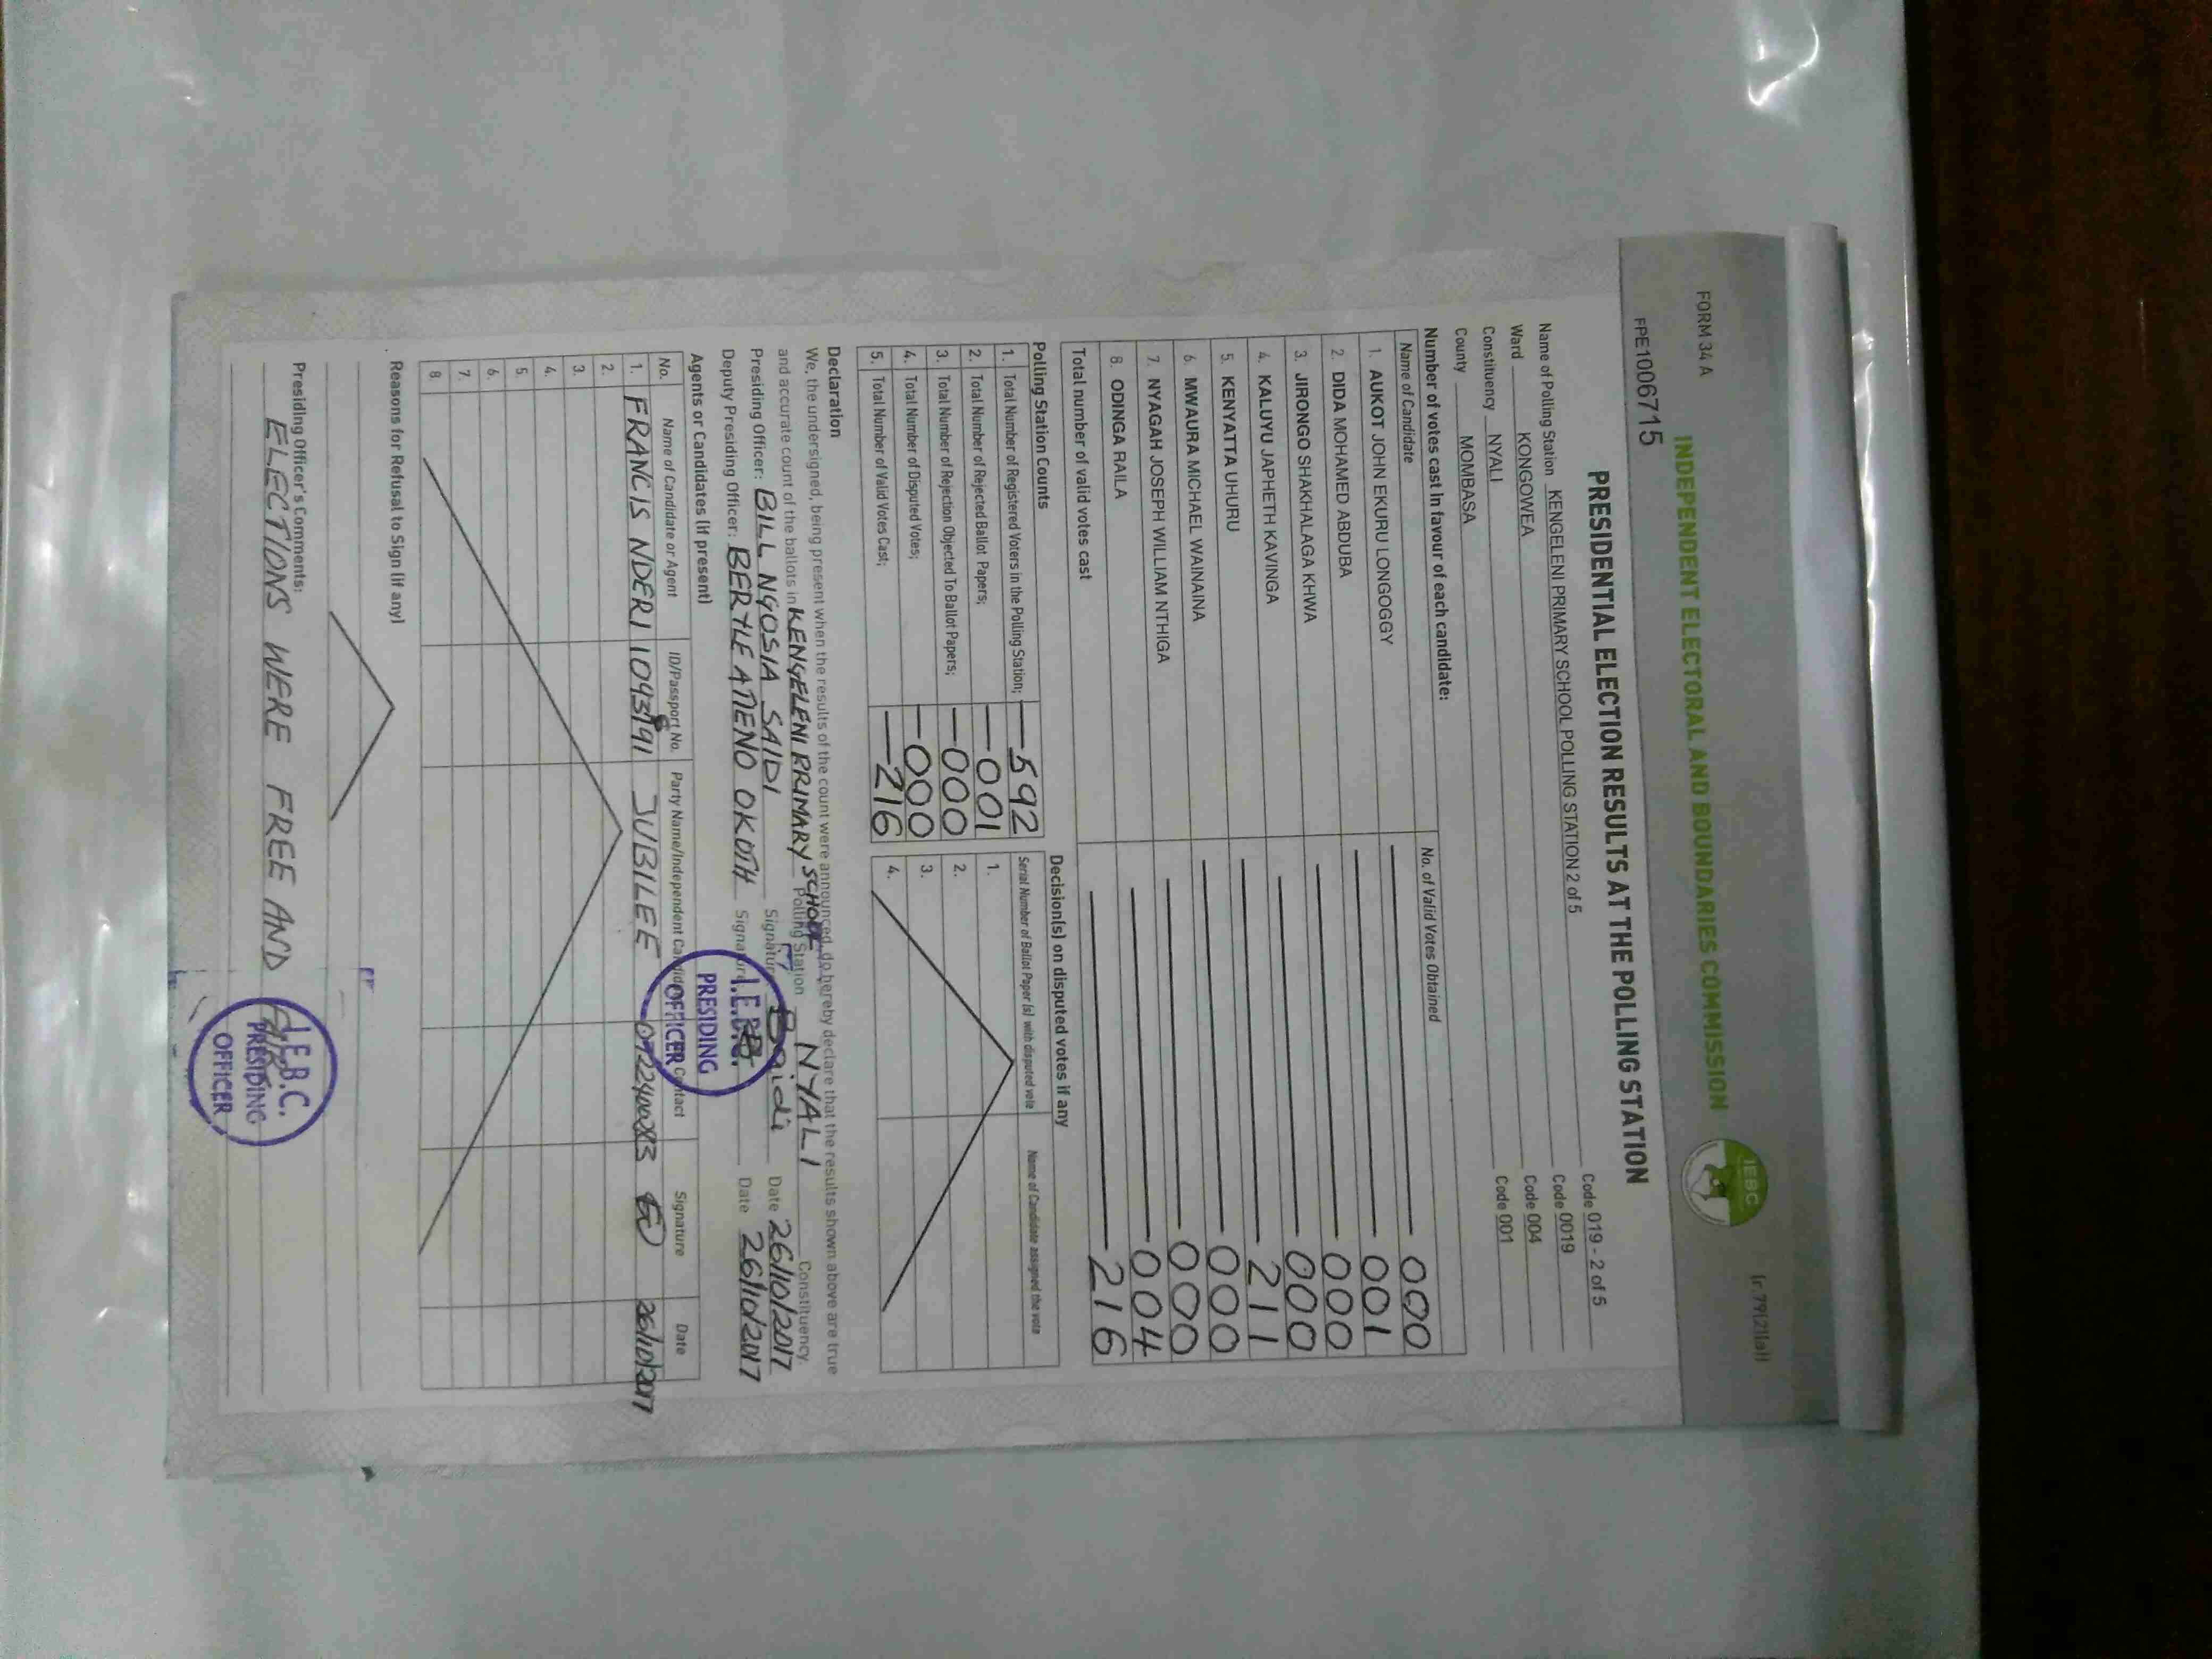 FORM 34 A
(r.79(2)(a))
INDEPENDENT ELECTORAL AND BOUNDARIES COMMISSION
IEBC
FPE1006715
PRESIDENTIAL ELECTION RESULTS AT THE POLLING STATION
Name of Polling Station KENGELENI PRIMARY SCHOOL POLLING STATION 2 of 5 Code 019 - 2 of 5
Ward KONGOWEA Code 0019
Constituency NYALI Code 004
County MOMBASA Code 001
Number of votes cast in favour of each candidate:
Name of Candidate No. of Valid Votes Obtained
1. AUKOT JOHN EKURU LONGOGGY 000
2. DIDA MOHAMED ABDUBA 001
3. JIRONGO SHAKHALAGA KHWA 000
4. KALUYU JAPHETH KAVINGA 000
5. KENYATTA UHURU 211
6. MWAURA MICHAEL WAINAINA 000
7. NYAGAH JOSEPH WILLIAM NTHIGA 000
8. ODINGA RAILA 004
Total number of valid votes cast 216
Polling Station Counts
1. Total Number of Registered Voters in the Polling Station; 592
2. Total Number of Rejected Ballot Papers; 001
3. Total Number of Rejection Objected To Ballot Papers; 000
4. Total Number of Disputed Votes; 000
5. Total Number of Valid Votes Cast; 216
Decision(s) on disputed votes if any
Serial Number of Ballot Paper (s) with disputed vote Name of Candidate assigned the vote
1.
2.
3.
4.
Declaration
We, the undersigned, being present when the results of the count were announced, do hereby declare that the results shown above are true
and accurate count of the ballots in KENGELENI PRIMARY SCHOOL Polling Station NYALI Constituency.
Presiding Officer: BILL NGOSIA SAIDI Signature Date 26/10/2017
Deputy Presiding Officer: BERYLE ATIENO OKOTH Signature Date 26/10/2017
I.E.B.C.
PRESIDING
OFFICER
Agents or Candidates (if present)
No. Name of Candidate or Agent ID/Passport No. Party Name/Independent Candidate Contact Signature Date
1. FRANCIS NDERI JUBILEE 0722400083 26/10/2017
2.
3.
4.
5.
6.
7.
8.
Reasons for Refusal to Sign (if any)
Presiding Officer's Comments:
ELECTIONS WERE FREE AND
I.E.B.C.
PRESIDING
OFFICER